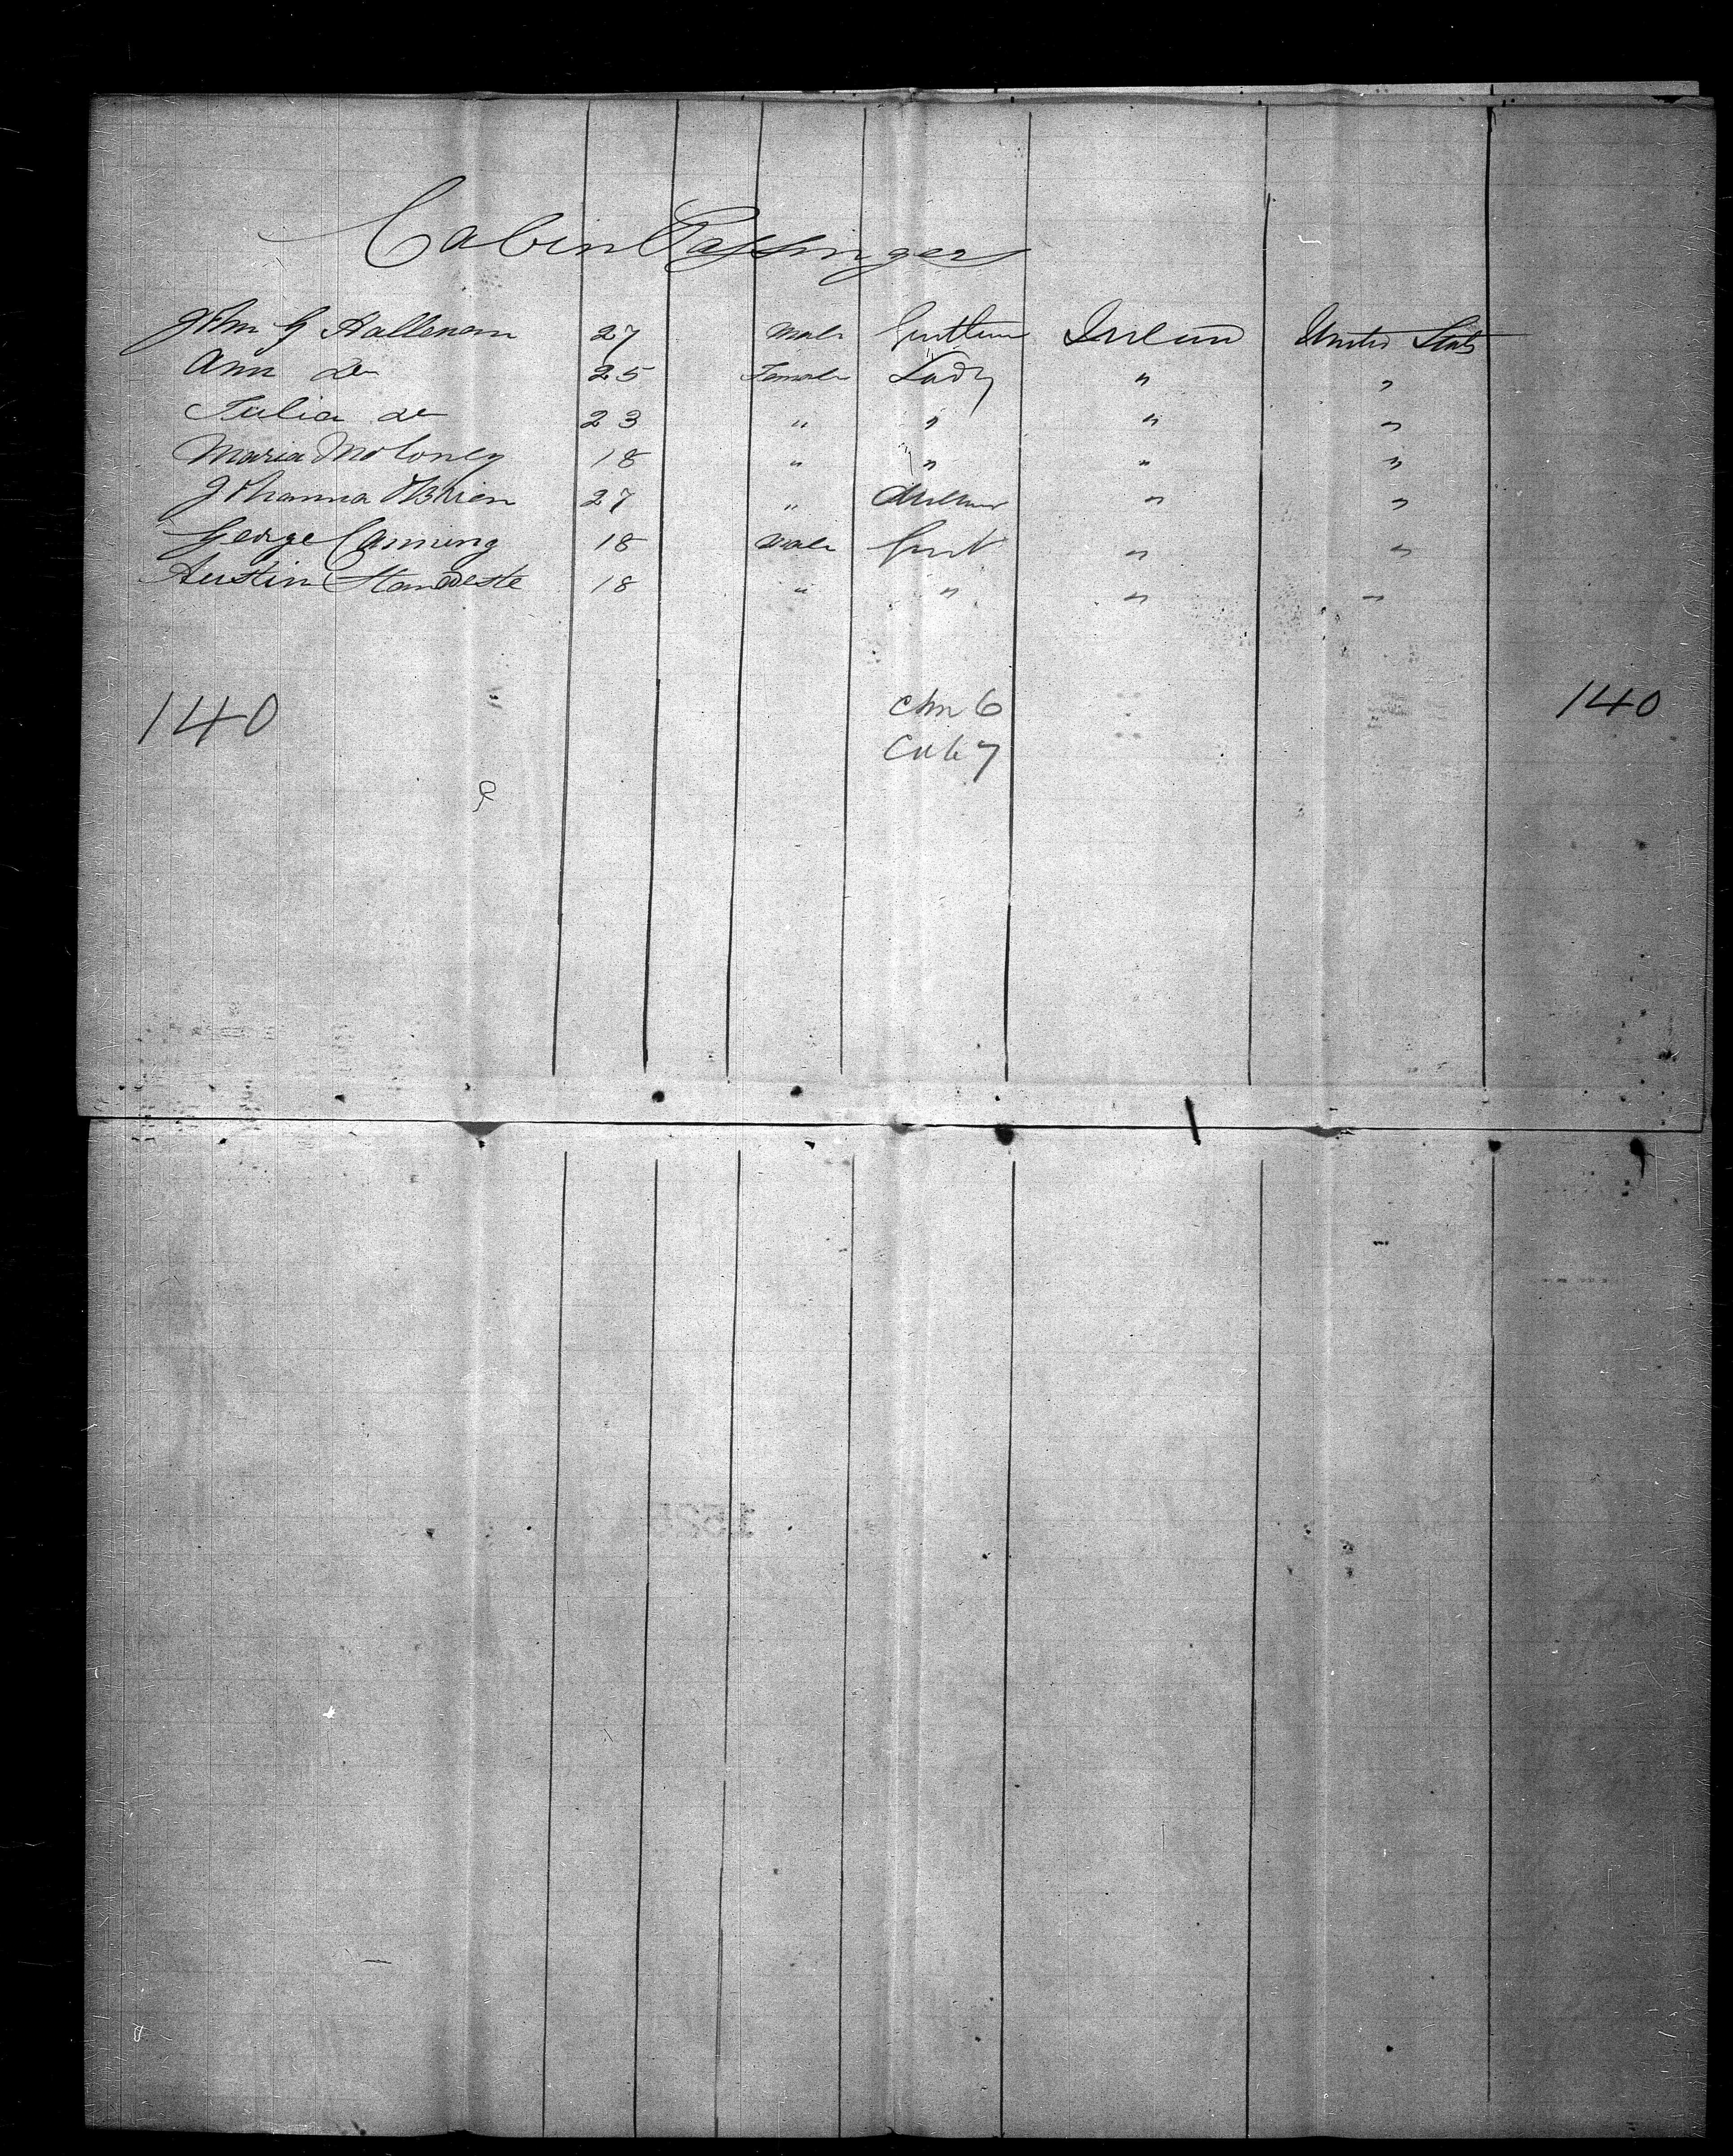 Cabin Passengers
John G Hallenan 27 Male Gentleman Ireland United States
Ann do 25 Female Lady " "
Julia do 23 " " " "
Maria Moloney 18 " " " "
Johanna OBrien 27 " " "
George Canning 18 Male Gent " "
Austin 18 " " " "
140 Chn 6 140
Cab 7